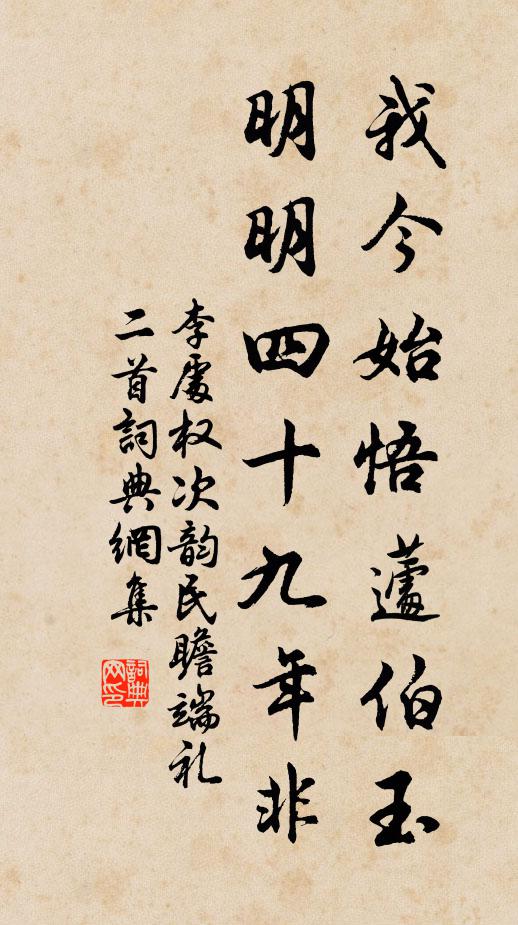 我今始悟蘧伯玉
明明四十九年非
李處权次韵民瞻端礼
二首詞典網集
詞典网印